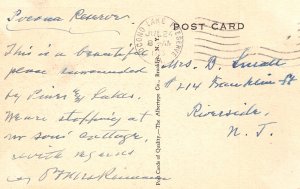 Pocono Reserve
POCONO LAKE PRESERVE
JUL 24
POST CARD
This is a beautiful
place surrounded
by Pines & Lakes.
We are stopping at
my sons' cottage,
with regards
Mrs. B. Small
#214 Franklin St
Riverside,
N. J.
Post Cards of Quality.—The Albertype Co., Brooklyn, N.